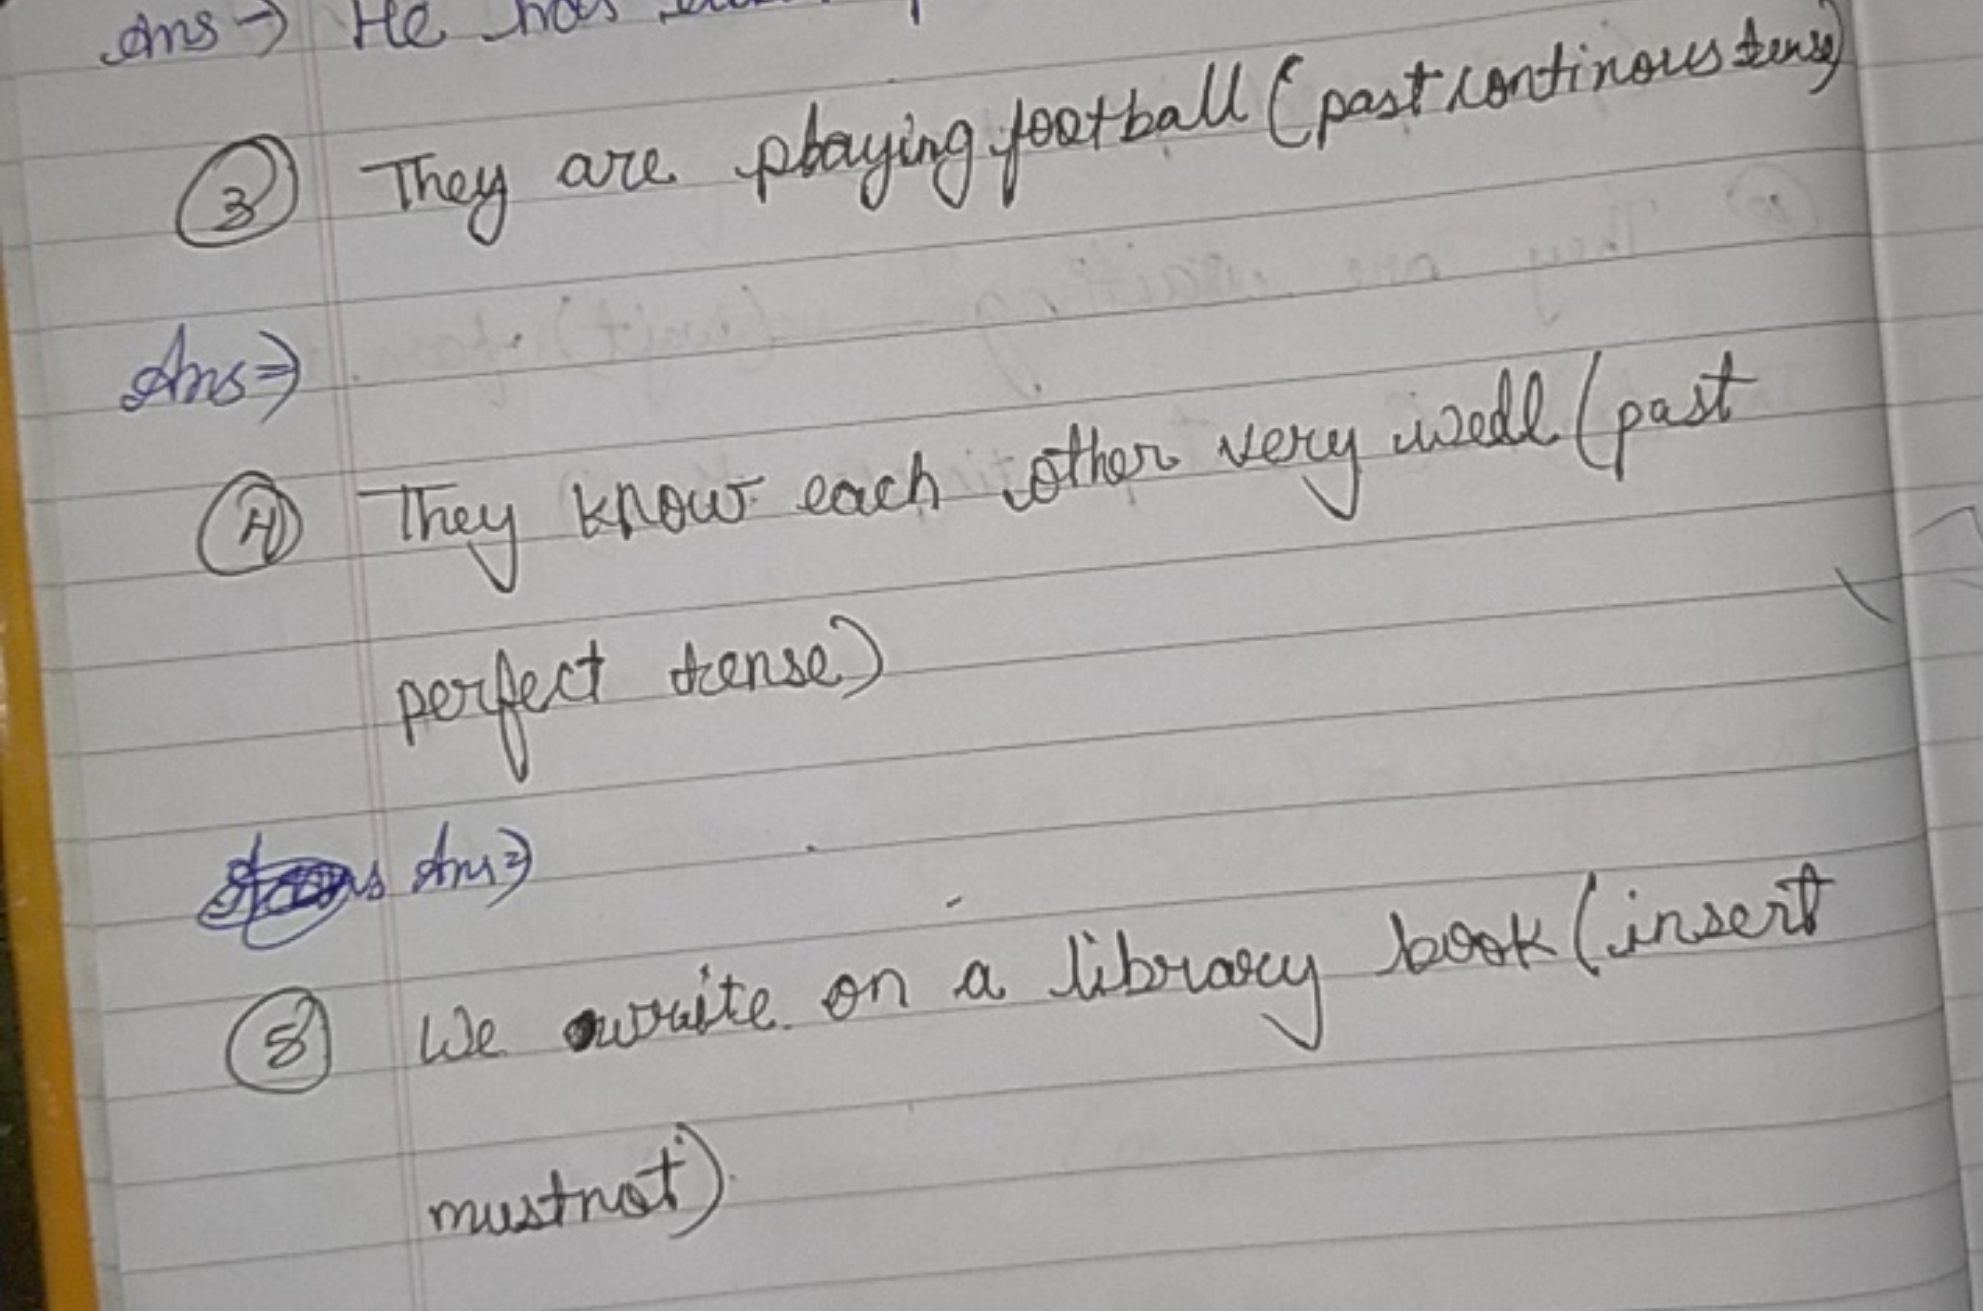 Ans → He has
③ They are playing football (past continous tense)
Ans ⇒
④ They know each other very well (past
perfect tense)
Ans ⇒
⑤ We write on a library book (insert
mustnot).